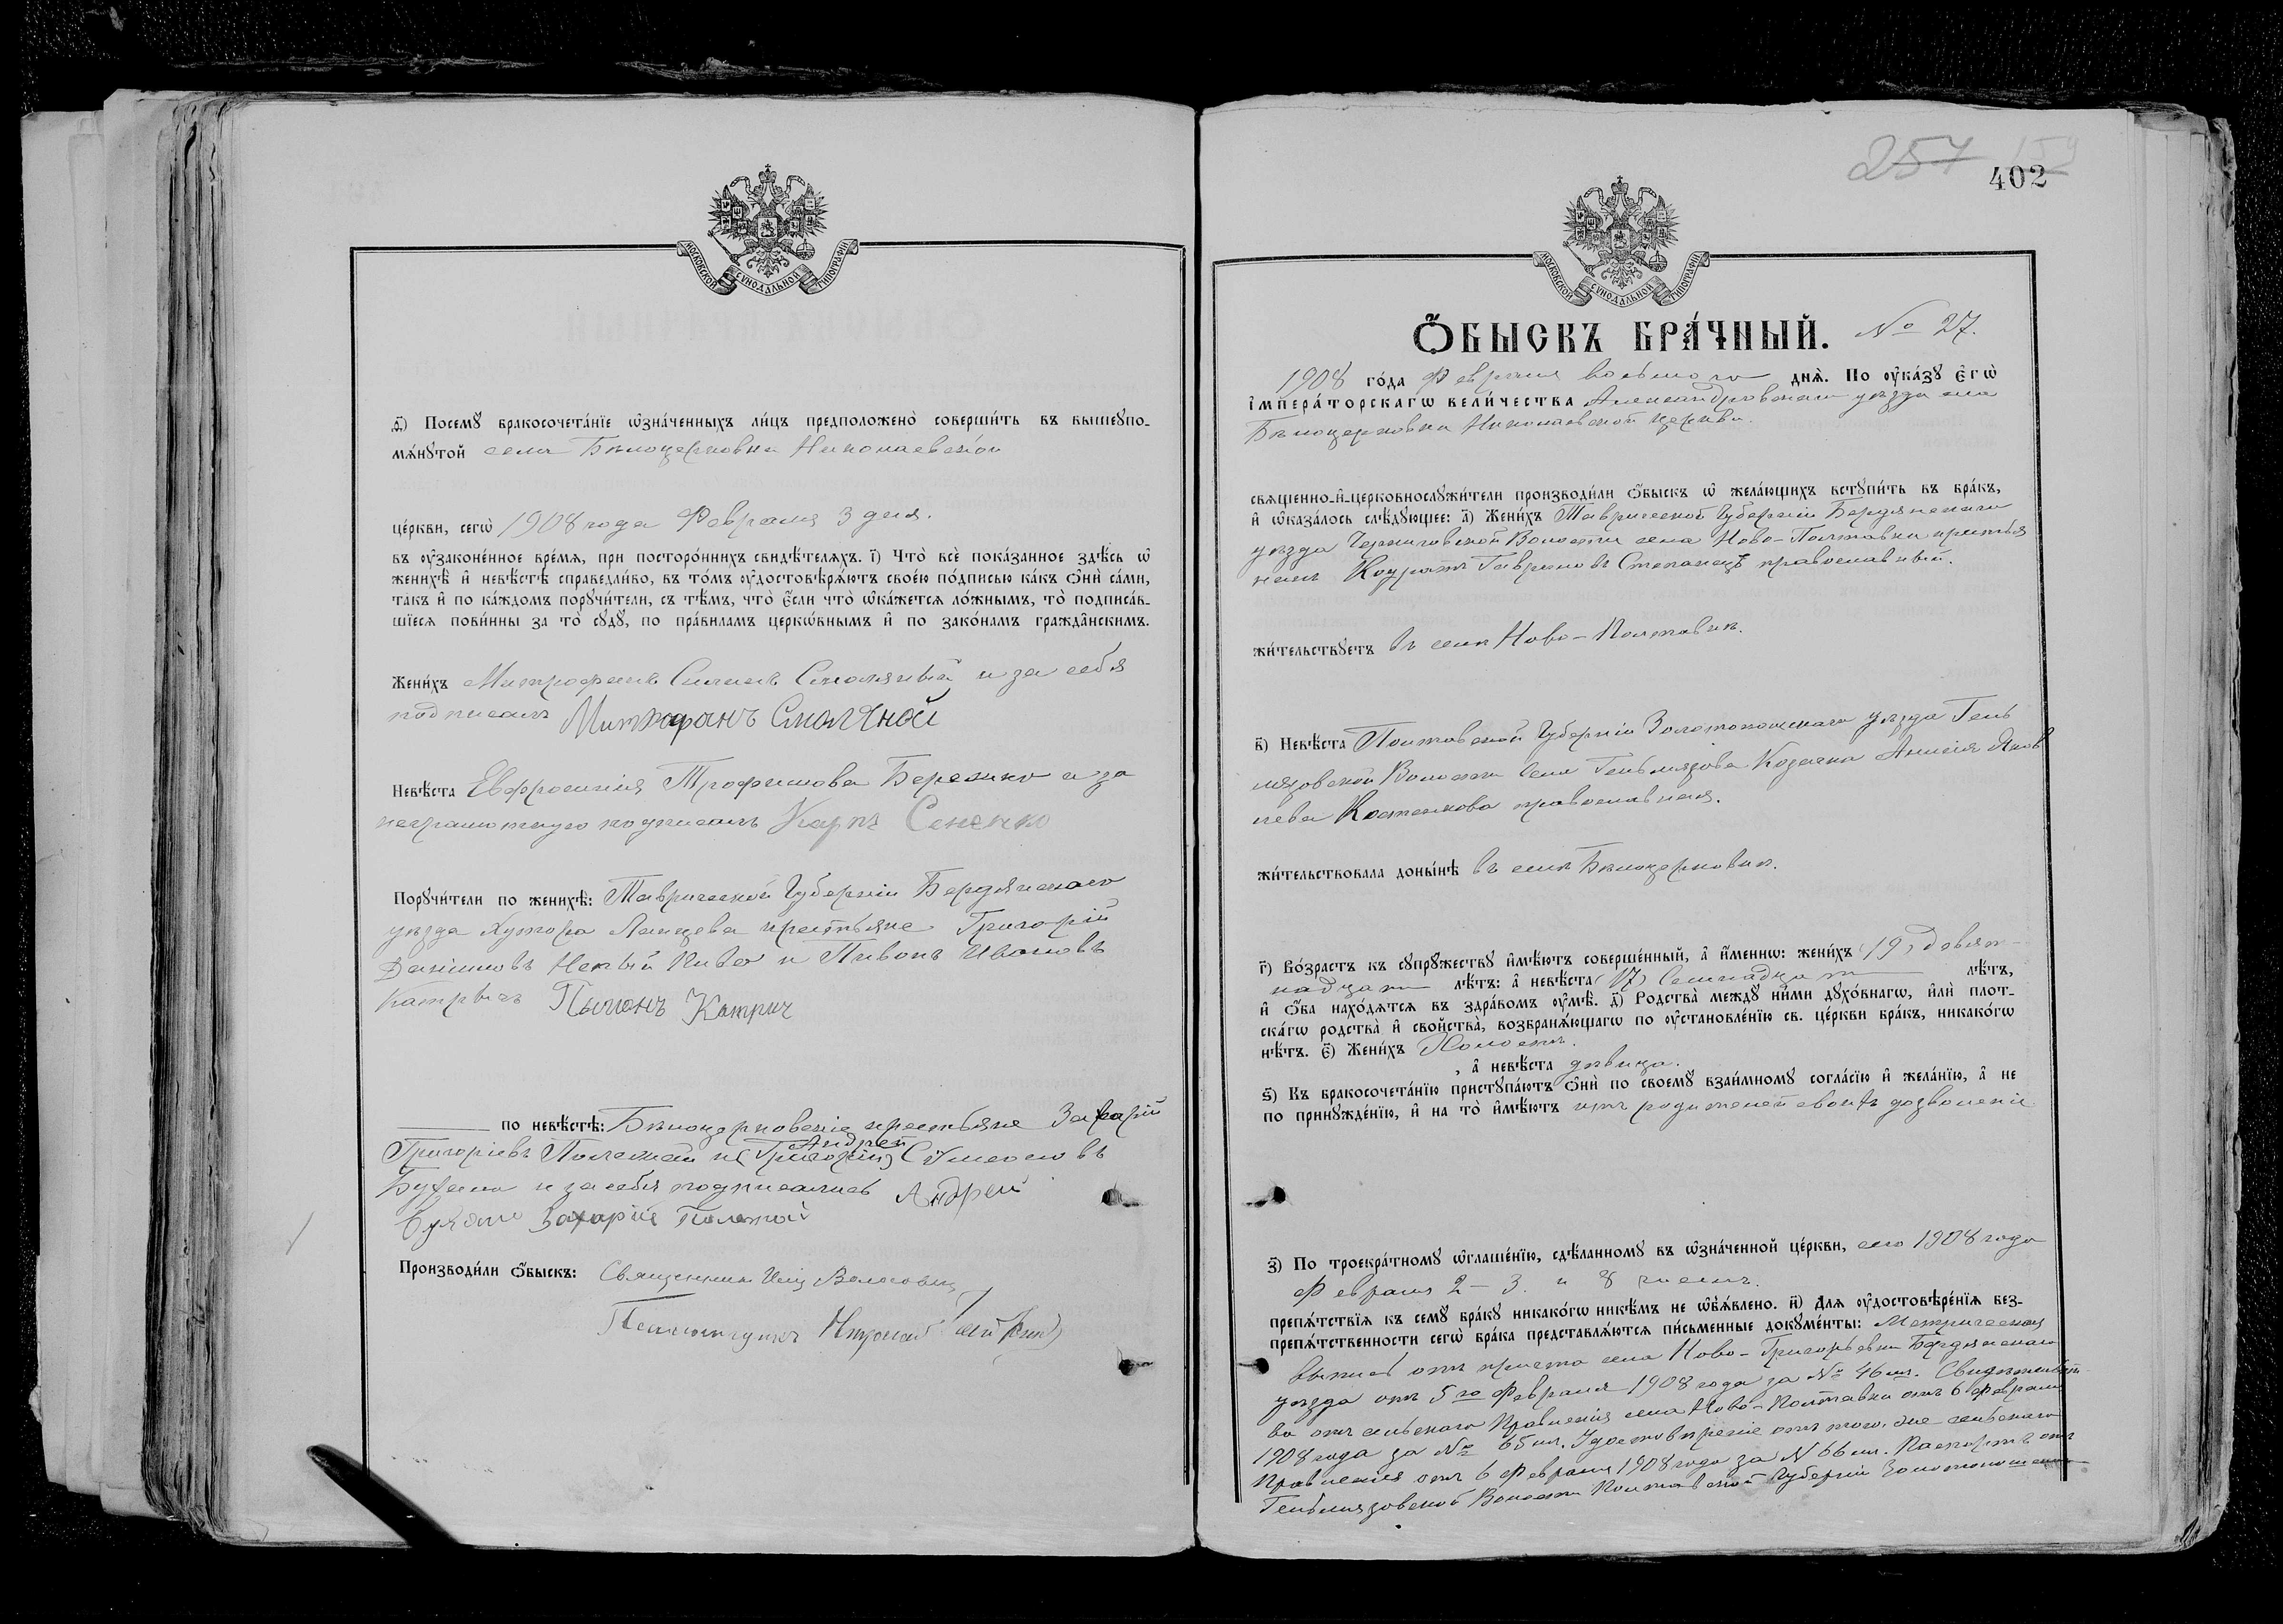 МОСКОВСКОЙ СѴНОДАЛЬНОЙ ТИПОГРАФІИ
д҃) Посемꙋ бракосочета́нїе ѡ҆зна́ченныхъ ли́цъ предположено̀ соверши́ть въ вышеꙋпо-
мѧ́нꙋтой села Бѣлоцерковки Николаевской
це́ркви, сегѡ̀ 1908 года Февраля 3 дня.
въ ᲂу҆законе́нное вре́мѧ, при посторо́ннихъ свидѣ́телѧхъ. і҃) Что̀ всѐ пока́занное здѣ́сь ѡ҆
женихѣ̀ и҆ невѣ́стѣ справедли́во, въ то́мъ ᲂу҆достовѣрѧ́ютъ свое́ю по́дписью ка́къ ѻ҆нѝ са́ми,
та́къ и҆ по ка́ждомъ порꙋчи́тели, съ тѣ́мъ, что̀ є҆́сли что̀ ѡ҆ка́жетсѧ ло́жнымъ, то̀ подписа́в-
шїесѧ пови́нны за то̀ сꙋдꙋ̀, по пра́виламъ церкѡ́внымъ и҆ по зако́намъ гражда̑нскимъ.
Жени́хъ Митрофанъ Силинъ Смоляный и за себя
подписалъ Митрофанъ Смоляной
Невѣ́ста Евфросинія Трофимова Березика и за
неграмотную подписалъ Карпъ Сененко
Порꙋчи́тели по женихѣ̀: Таврической Губерніи Бердянскаго
уѣзда Хутора крестьяне Григорій
Даниловъ и Пивонъ Ивановъ
Катричъ Пывонъ Катрич
по невѣ́стѣ: Бѣлоцерковскіе крестьяне Захарій
Андрей
Григоріевъ Полежай и (Григорій) Сѵмеоновъ
Буханъ и за себя подписались Андрей
Захарій Полежай
Производи́ли ѻ҆́быскъ: Священникъ
Псаломщикъ Николай
257
402
МОСКОВСКОЙ СѴНОДАЛЬНОЙ ТИПОГРАФІИ
Ѻ҆́БЫСКЪ БРА́ЧНЫЙ. № 27.
1908 го́да Февраля восьмого днѧ̀. По ᲂу҆ка́зꙋ є҆гѡ̀
і҆мпера́торскагѡ вели́чества Александровскаго уѣзда села
Бѣлоцерковки Николаевской церкви.
свѧще́нно-и҆-церковнослꙋжи́тели производи́ли ѻ҆́быскъ ѡ҆ жела́ющихъ встꙋпи́ть въ бра́къ,
и҆ ѡ҆каза́лось слѣ́дꙋющее: а҃) Жени́хъ Таврической Губерніи Бердянскаго
уѣзда Черниговской Волости села Ново-Полтавки крестья
нинъ Кодратъ Гавриловъ Степанецъ православный.
жи́тельствꙋетъ въ селѣ Ново-Полтавкѣ.
в҃) Невѣ́ста Полтавской Губерніи Золотоношскаго уѣзда Гель
мязовской Волости Села Гельмязова Козачка Анисія Яков
лева Костенкова православная.
жи́тельствовала доны́нѣ въ селѣ Бѣлоцерковкѣ.
г҃) Во́зрастъ къ сꙋпрꙋ́жествꙋ и҆мѣ́ютъ соверше́нный, а҆ и҆́меннѡ: жени́хъ (19) девят-
надцать лѣ́тъ: а҆ невѣ́ста (17) Семнадцать лѣ́тъ,
и҆ ѻ҆́ба нахо́дѧтсѧ въ здра́вомъ ᲂу҆мѣ̀. д҃) Родства̀ междꙋ̀ ни́ми дꙋхо́внагѡ, и҆лѝ плот-
ска́гѡ родства̀ и҆ сво́йства̀, возбранѧ́ющагѡ по ᲂу҆становле́нїю св. це́ркви бра́къ, никако́гѡ
нѣ́тъ. є҃) Жени́хъ Холостъ.
, а҆ невѣ́ста дѣвица.
ѕ҃) Къ бракосочета́нїю пристꙋпа́ютъ ѻ҆нѝ по своемꙋ̀ взаи́мномꙋ согла́сїю и҆ жела́нїю, а҆ не
по принꙋжде́нїю, и҆ на то̀ и҆мѣ́ютъ отъ родителей своихъ дозволеніе
з҃) По троекра́тномꙋ ѡ҆глаше́нїю, сдѣ́ланномꙋ въ ѡ҆зна́ченной це́ркви, сего 1908 года
Февраля 2-3 и 8 числъ.
препѧ́тствїѧ къ семꙋ̀ бра́кꙋ никако́гѡ никѣ́мъ не ѡ҆б̾ѧ́влено. и҃) Длѧ̀ ᲂу҆достовѣре́нїѧ без-
препѧ́тственности сегѡ̀ бра́ка представлѧ́ютсѧ пи́сьменные докꙋме́нты: Метрическая
выпись отъ причта села Ново-Григорьевки Бердянскаго
уѣзда отъ 5го Февраля 1908 года за № 46мъ. Свидѣтельст
во отъ сельскаго Правленія села Ново-Полтавки отъ 6 Февраля
1908 года за № 65мъ. Удостовѣреніе отъ того-же сельскаго
Правленія отъ 6 Февраля 1908 года за № 66мъ. Паспортъ отъ
Гельмязовской Волости Полтавской Губерніи Золотоношскаго